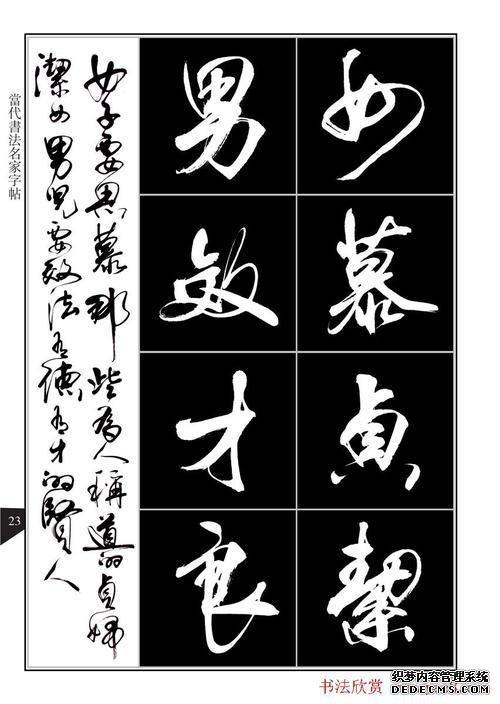 女慕貞絜
男效才良
女子要思慕那些為人稱道的貞婦
潔女男兒要效法有德有才的賢人
當代書法名家字帖
23
书法欣赏
织梦内容管理系统
DEDECMS.COM